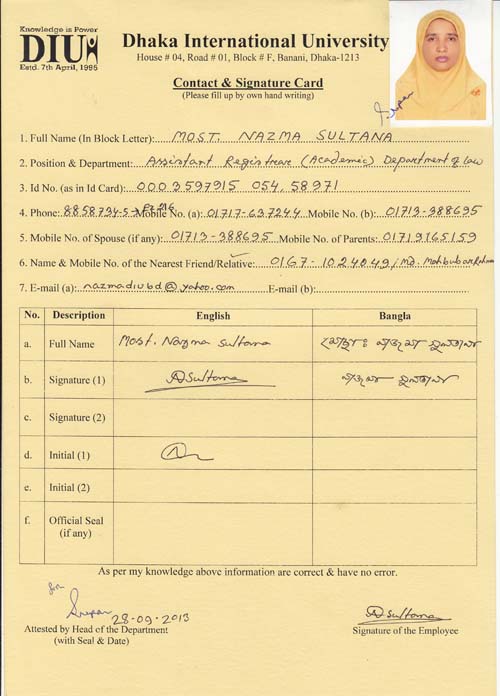 Knowledge is Power
DIU
Estd. 7th April, 1995
Dhaka International University
House # 04, Road # 01, Block # F, Banani, Dhaka-1213
Contact & Signature Card
(Please fill up by own hand writing)
1. Full Name (In Block Letter): MOST. NAZMA SULTANA
2. Position & Department: Assistant Registrar (Academic) Department of law
3. Id No. (as in Id Card): 000 3597915 054, 58971
4. Phone: 8858734-5 Mobile No. (a): 01717-637244 Mobile No. (b): 01713-988695
5. Mobile No. of Spouse (if any): 01713-988695 Mobile No. of Parents: 01719165159
6. Name & Mobile No. of the Nearest Friend/Relative: 0167-1024049, Md. Mahbubar Rahman
7. E-mail (a): nazmadiubd@yahoo.com E-mail (b):
No. Description English Bangla
a. Full Name Most. Nazma Sultana মোছাঃ নাজমা সুলতানা
b. Signature (1) Sultana নাজমা সুলতানা
c. Signature (2)
d. Initial (1)
e. Initial (2)
f. Official Seal
(if any)
As per my knowledge above information are correct & have no error.
28-09-2013
Attested by Head of the Department
(with Seal & Date)
Sultana
Signature of the Employee